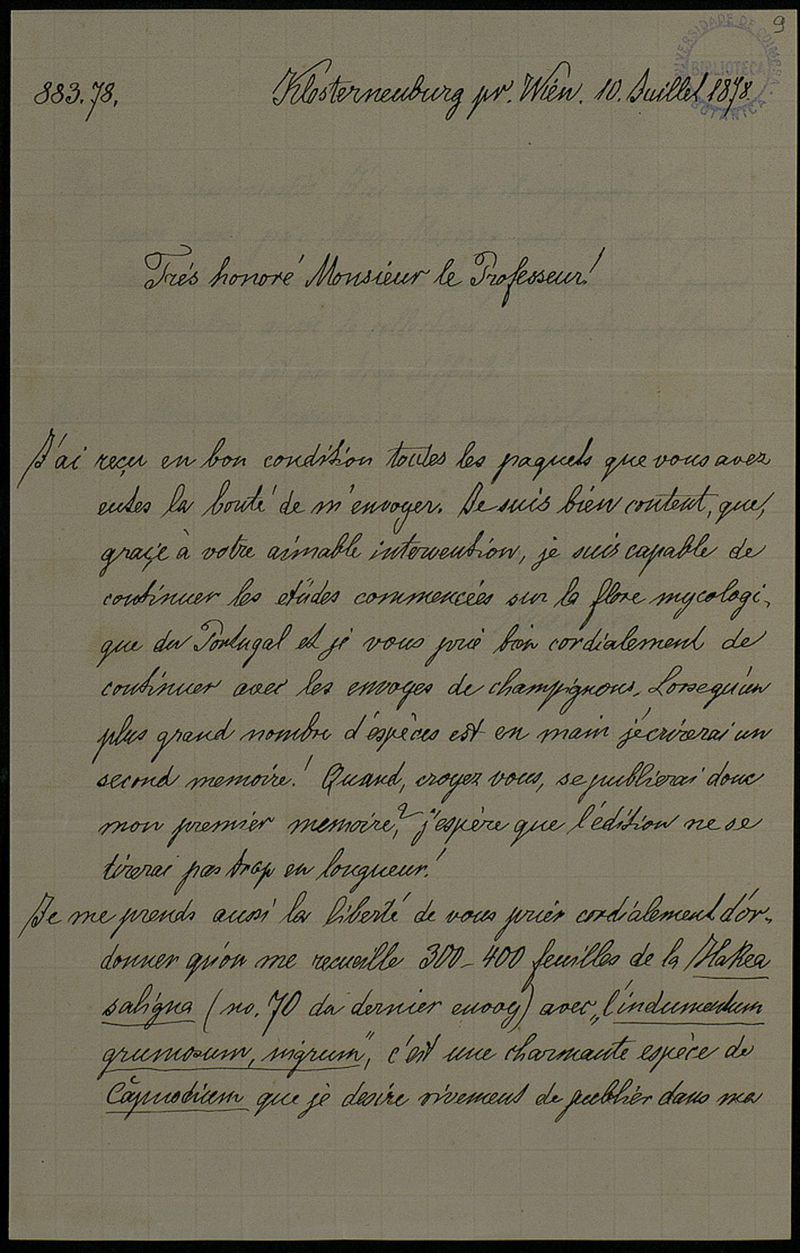 9
UNIVERSIDADE DE COIMBRA
BIBLIOTECA
BOTANICA
883.78. Klosterneuburg pr. Wien. 10. Juillet 1878.
Trés honoré Monsieur le Professeur!
J'ai reçu en bon condition toutes les paquets que vous avez
eutes la bonté de m'envoyer. Je suis bien content, que,
graçe à votre aimable intervention, je suis capable de
continuer les etüdes commencées sur la flore mycologi-
que du Portugal et je vous prie bien cordialement de
continuer avec les envoyes de champignons. Lorsequ'un
plus grand nombre d'éspèces est en main j'écrirerai un
second memoire! Quand, croyez vous, se publierai donc
mon premier memoire? j'espère que l'édition ne se
tirerai pas trop en longueur!
Je me prends aussi la liberté de vous priér cordialement d'or-
donner qu'on me recueille 300-400 feuilles de la Hakea
saligna (no. 70 du dernier envoy) avec „l'indumentum
grumosum, nigrum", c'est une charmante espèce de
Capnodium que je desire vivement de publiér dans ma